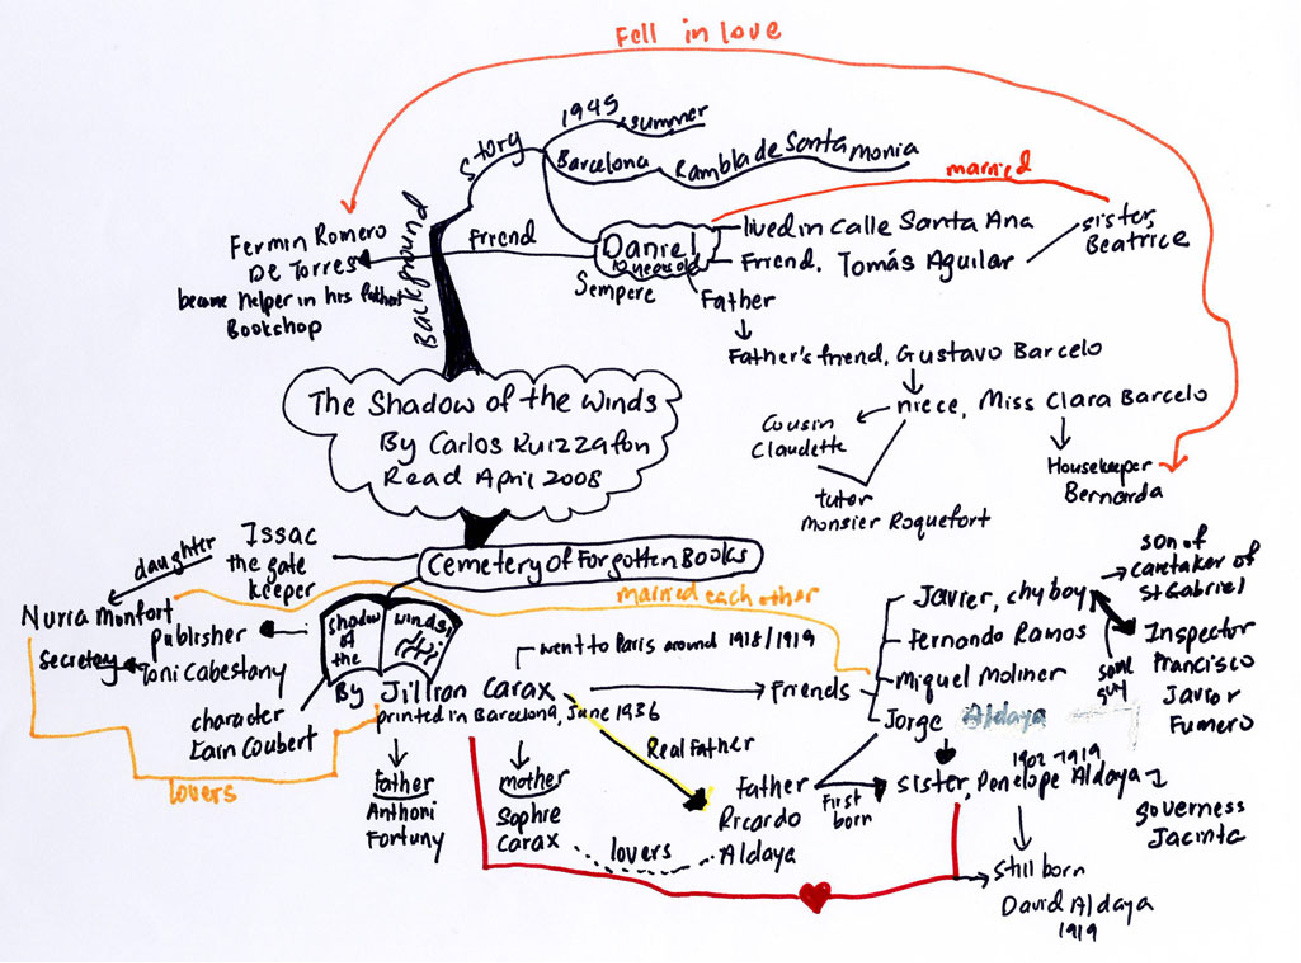 Fell in love
1945
summer
Story
Barcelona
Rambla de Santa monia
married
Background
Fermin Romero
De Torres
became helper in his father
Bookshop
friend
Daniel
Sempere
lived in Calle Santa Ana
Friend, Tomás Aguilar
sister,
Beatrice
Father
Father's friend, Gustavo Barcelo
niece, Miss Clara Barcelo
Cousin
Claudette
tutor
Monsier Roquefort
Housekeeper
Bernarda
The Shadow of the Winds
By Carlos Ruizzafon
Read April 2008
Cemetery of Forgotten Books
Issac
the gate
keeper
daughter
Nuria Monfort
married each other
publisher
Toni Cabestany
Secretary
shadow
of
the
winds
By Jillian Carax
printed in Barcelona, June 1936
character
Lain Coubert
lovers
went to Paris around 1918/1919
Friends
Javier, chy boy
Fernando Ramos
Miquel Moliner
Jorge Aldaya
son of
caretaker of
St Gabriel
same
guy
Inspector
Francisco
Javior
Fumero
Real Father
Father
Anthoni
Fortuny
mother
Sophie
Carax
lovers
Father
Ricardo
Aldaya
First
born
1902-1919
sister, Penelope Aldaya
Governess
Jacinta
still born
David Aldaya
1919